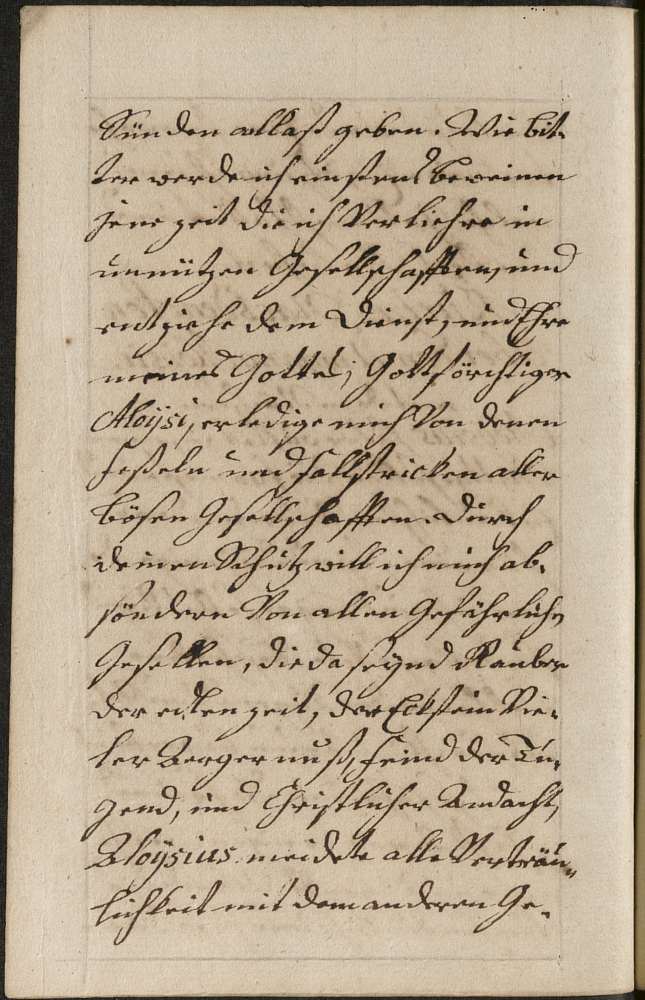 Sünden ablaß geben. Wie bit-
ter werde ich einstens beweinen
jene zeit die ich Verliehre in
unnützen Gesellschafften, und
entziehe dem Dienst, und Ehre
meines Gottes; Gottsförchtiger
Aloÿsi, erledige mich Von denen
feßeln und fallstricken aller
bösen Gesellschafften. Durch
deinen Schutz will ich mich ab-
söndern Von allen Gefährlichen
Gesellen, die da seÿnd Rauber
der edlen zeit, der Eckstein Vie-
ler Aergernuß, feind der Tu-
gend, und Christlicher Andacht,
Aloÿsius meidete alle Verträu-
lichkeit mit dem anderen Ge-